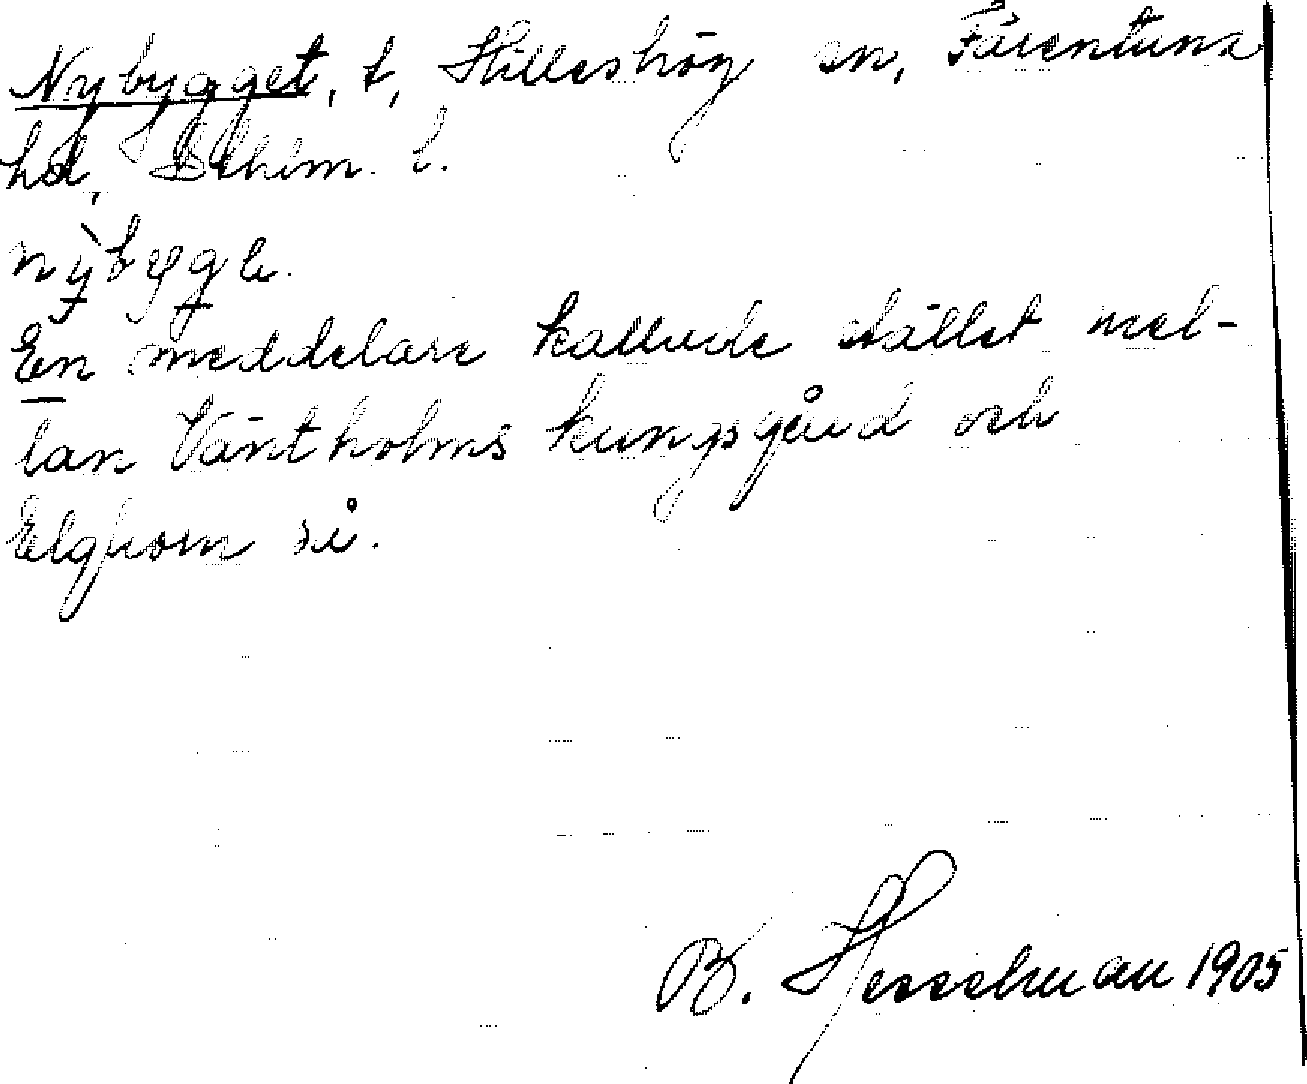 Nybygget, t, Hilleshög sn, Färentuna
hd, Sthlm. l.
En meddelare kallade stället mel-
lan Väntholms kungsgård och
så.
B. Hesselman 1905